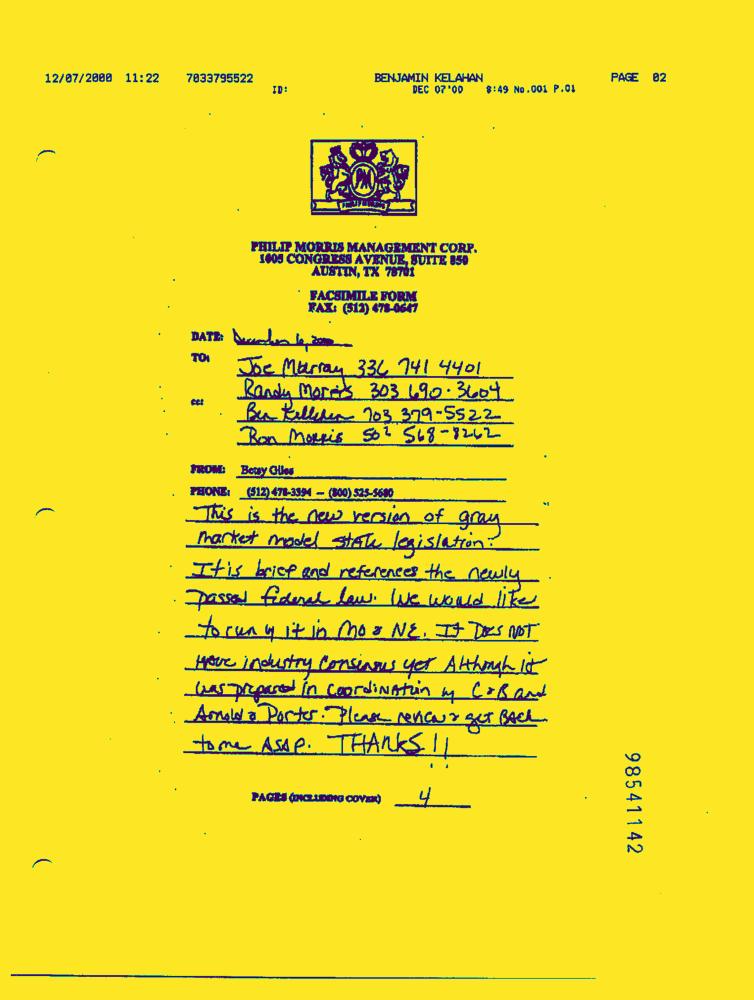 12/07/2000 11:22 7033795522 BENJAMIN KELAHAN PAGE 02
ID: DEC 07'00 8:49 No.001 P.01
PM
PHILIP MORRIS MANAGEMENT CORP.
1005 CONGRESS AVENUE, SUITE 850
AUSTIN, TX 78701
FACSIMILE FORM
FAX: (512) 478-0647
DATE: December 6, 2000
TO: Joe Murray 336 741 4401
Randy Morris 303 690-3604
cc: Ben Kelleher 703 379-5522
Ron Morris 502 568-8262
FROM: Betsy Giles
PHONE: (512) 478-3394 – (800) 525-5680
This is the new version of gray
market model state legislation.
It is brief and references the newly
passed federal law. We would like
to run w it in MO & NE. It Does NOT
Have industry consensus yet Although it
was prepared in coordination w C&B and
Arnold & Porter. Please review & get Back
to me ASAP. THANKS!!
PAGES (INCLUDING COVER) 4
98541142